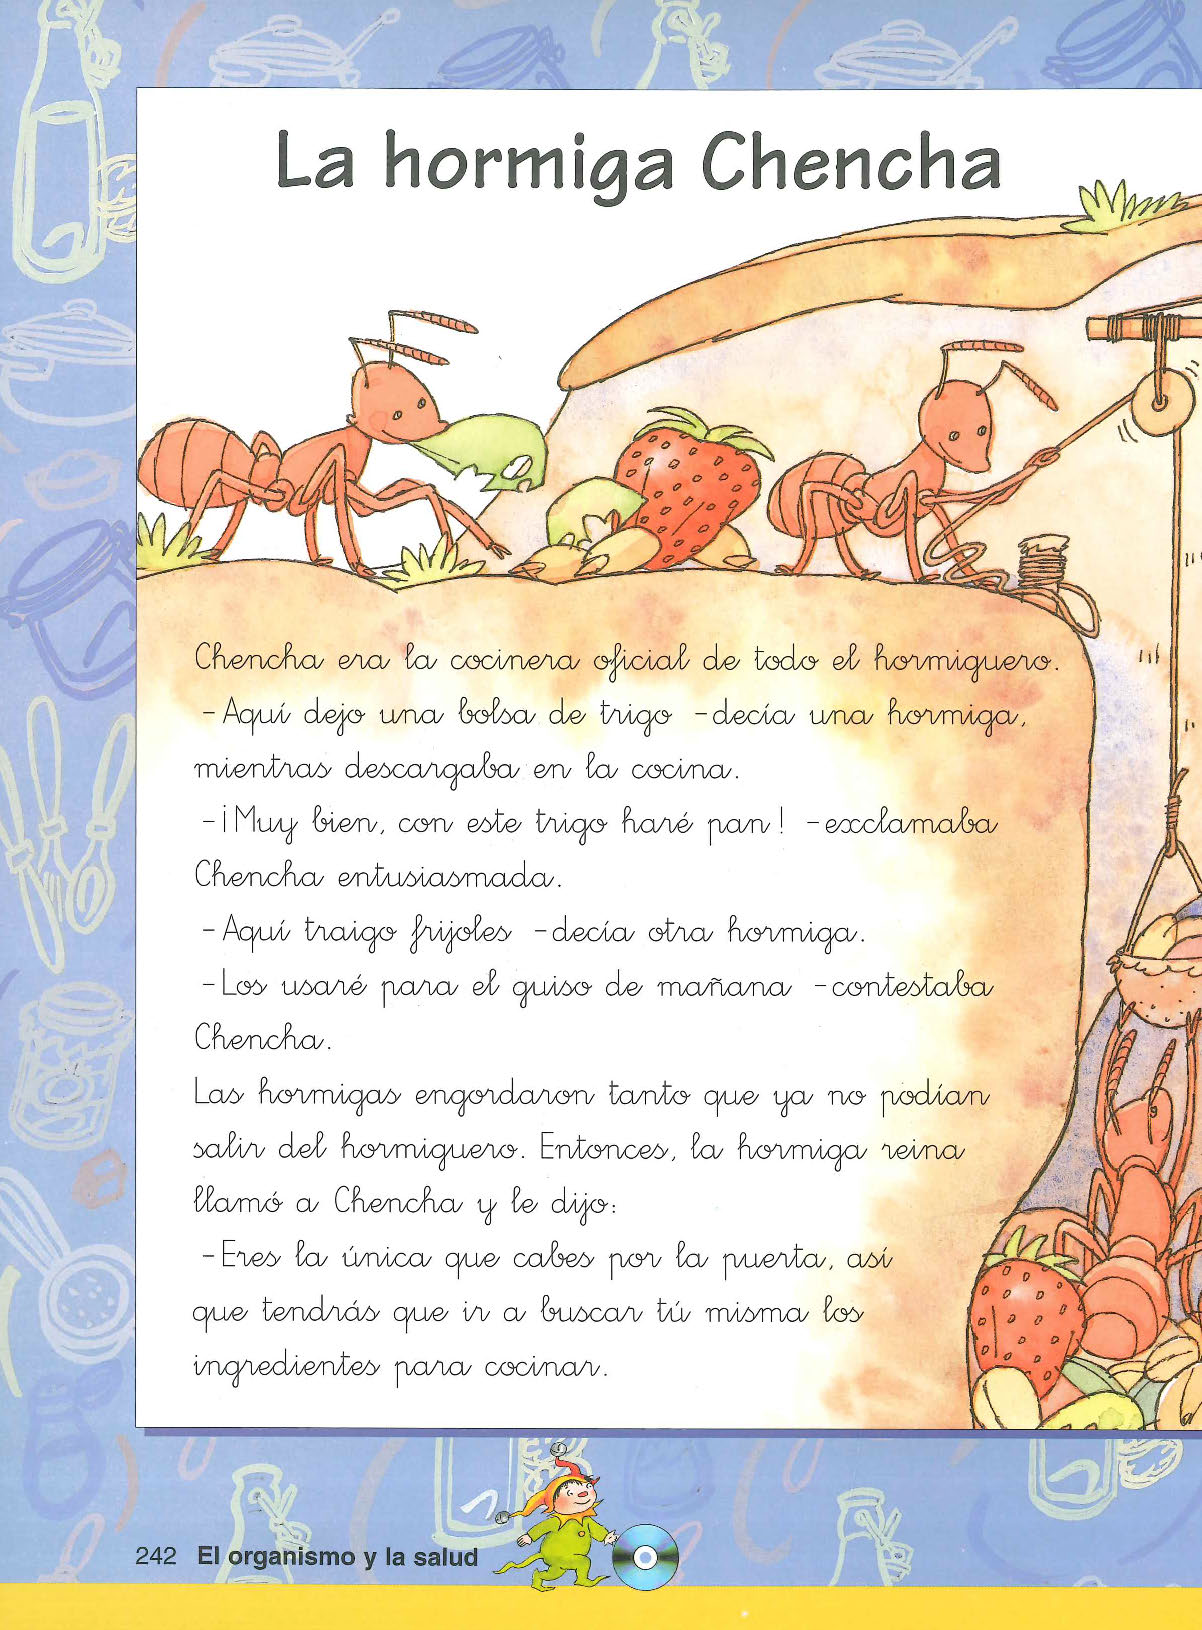 La hormiga Chencha
Chencha era la cocinera oficial de todo el hormiguero.
-Aquí dejo una bolsa de trigo -decía una hormiga,
mientras descargaba en la cocina.
-¡Muy bien, con este trigo haré pan! -exclamaba
Chencha entusiasmada.
-Aquí traigo frijoles -decía otra hormiga.
-Los usaré para el guiso de mañana -contestaba
Chencha.
Las hormigas engordaron tanto que ya no podían
salir del hormiguero. Entonces, la hormiga reina
llamó a Chencha y le dijo:
-Eres la única que cabes por la puerta, así
que tendrás que ir a buscar tú misma los
ingredientes para cocinar.
242 El organismo y la salud